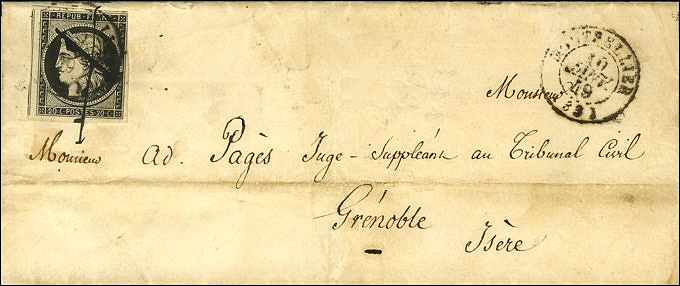 REPUB. FRANC.
20 C. POSTES 20 C.
MONTPELLIER
10
JANV.
49
(33)
Monsieur
Monsieur Ad. Pagès Juge-Suppléant au Tribunal Civil
Grénoble
Isère